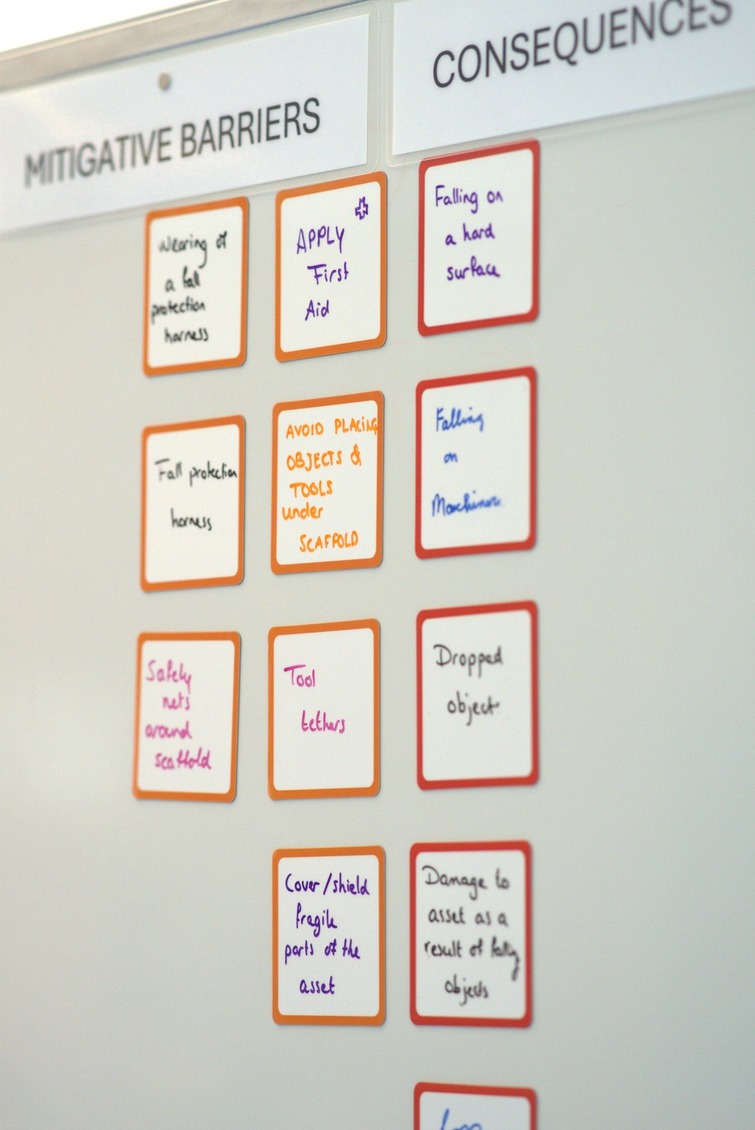 MITIGATIVE BARRIERS
CONSEQUENCES
Wearing of
a fall
protection
harness
APPLY
First
Aid
Falling on
a hard
surface
Fall protection
harness
AVOID PLACING
OBJECTS &
TOOLS
under
SCAFFOLD
Falling
on
Safety
nets
around
scaffold
Tool
tethers
Dropped
object
Cover/shield
fragile
parts of the
asset
Damage to
asset as a
result of falling
objects